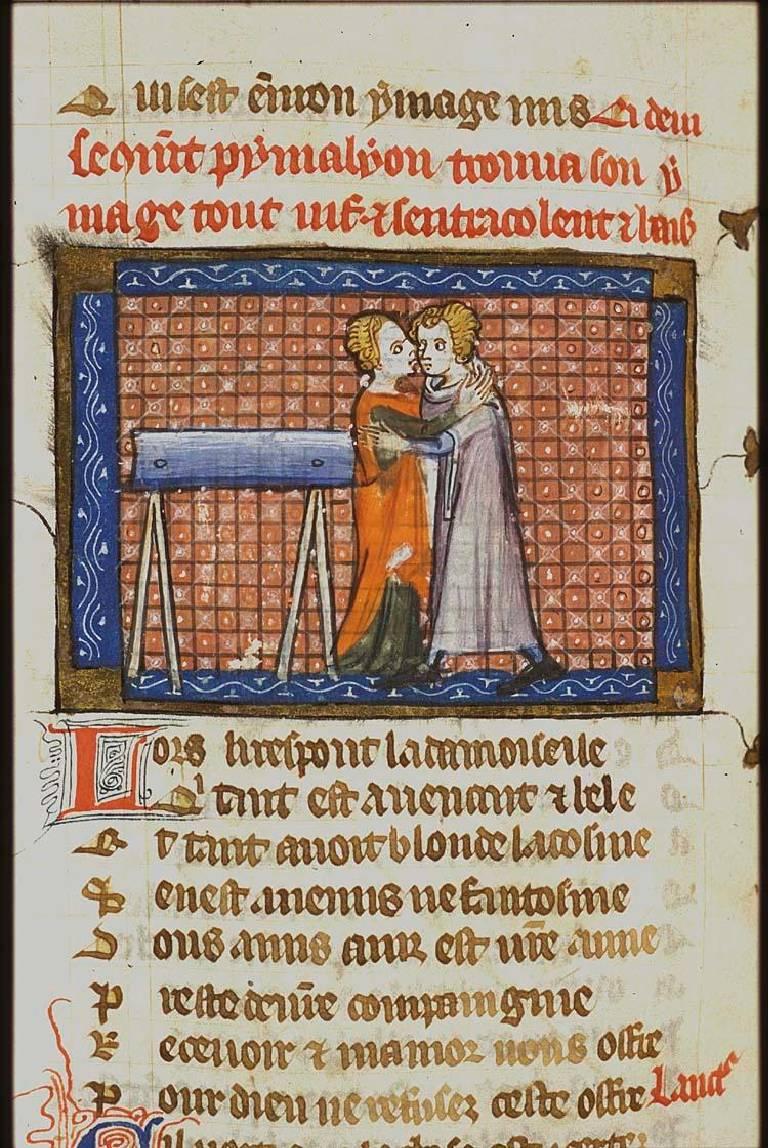 Qui sest en mon ymage mis Ci deui
se omēt pymalyon trouua son y
mage tout uif ⁊ sentracolent ⁊ bais
Lors li respont la damoiselle
Qi tant est auenant ⁊ bele
Et tant auoit blonde la cosme
Ce nest anemis ne fantosme
Dous amis ainz est vr̄e amie
Preste de vr̄e compaingnie
Receuoir ⁊ mamor uous offre
Pour dieu ne refusez ceste offre Lauct